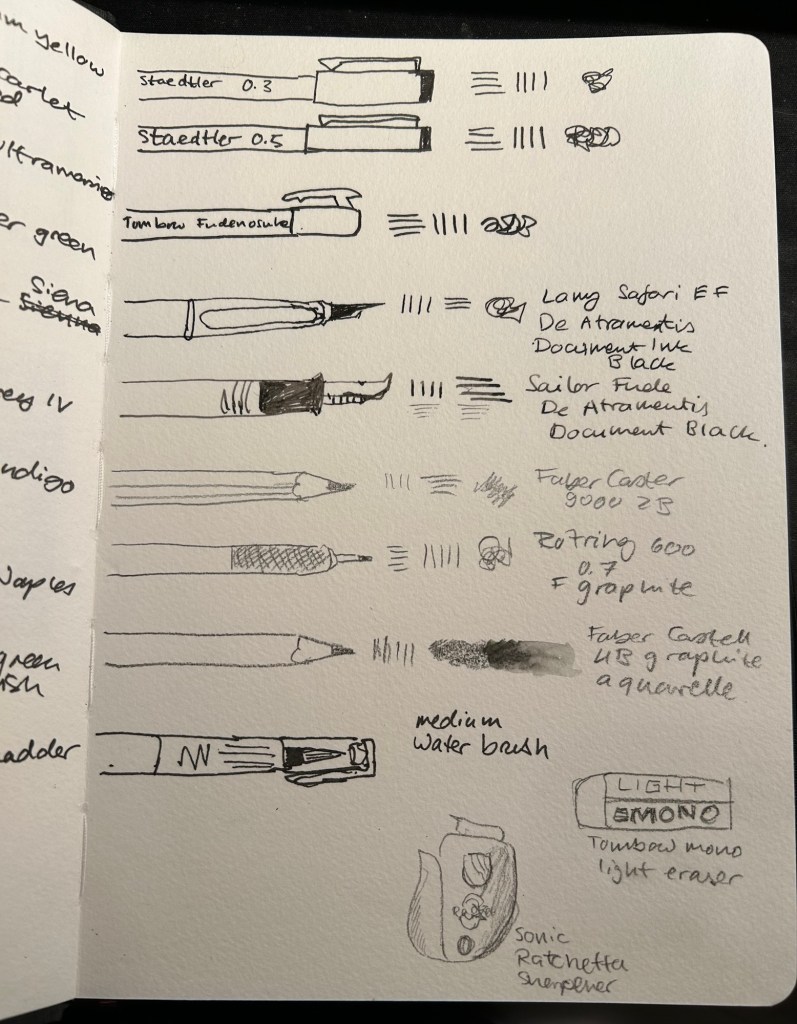 yellow
scarlet
ultramarine
green
Siena
Sienna
IV
indigo
Naples
green
madder
Staedtler 0.3
Staedtler 0.5
Tombow Fudenosuke
Lamy Safari EF
De Atramentis
Document Ink
Black
Sailor Fude
De Atramentis
Document Black.
Faber Caster
9000 2B
Rotring 600
0.7
F graphite
Faber Castell
4B graphite
aquarelle
medium
water brush
LIGHT
MONO
Tombow mono
light eraser
Sonic
Ratchetta
sharpener